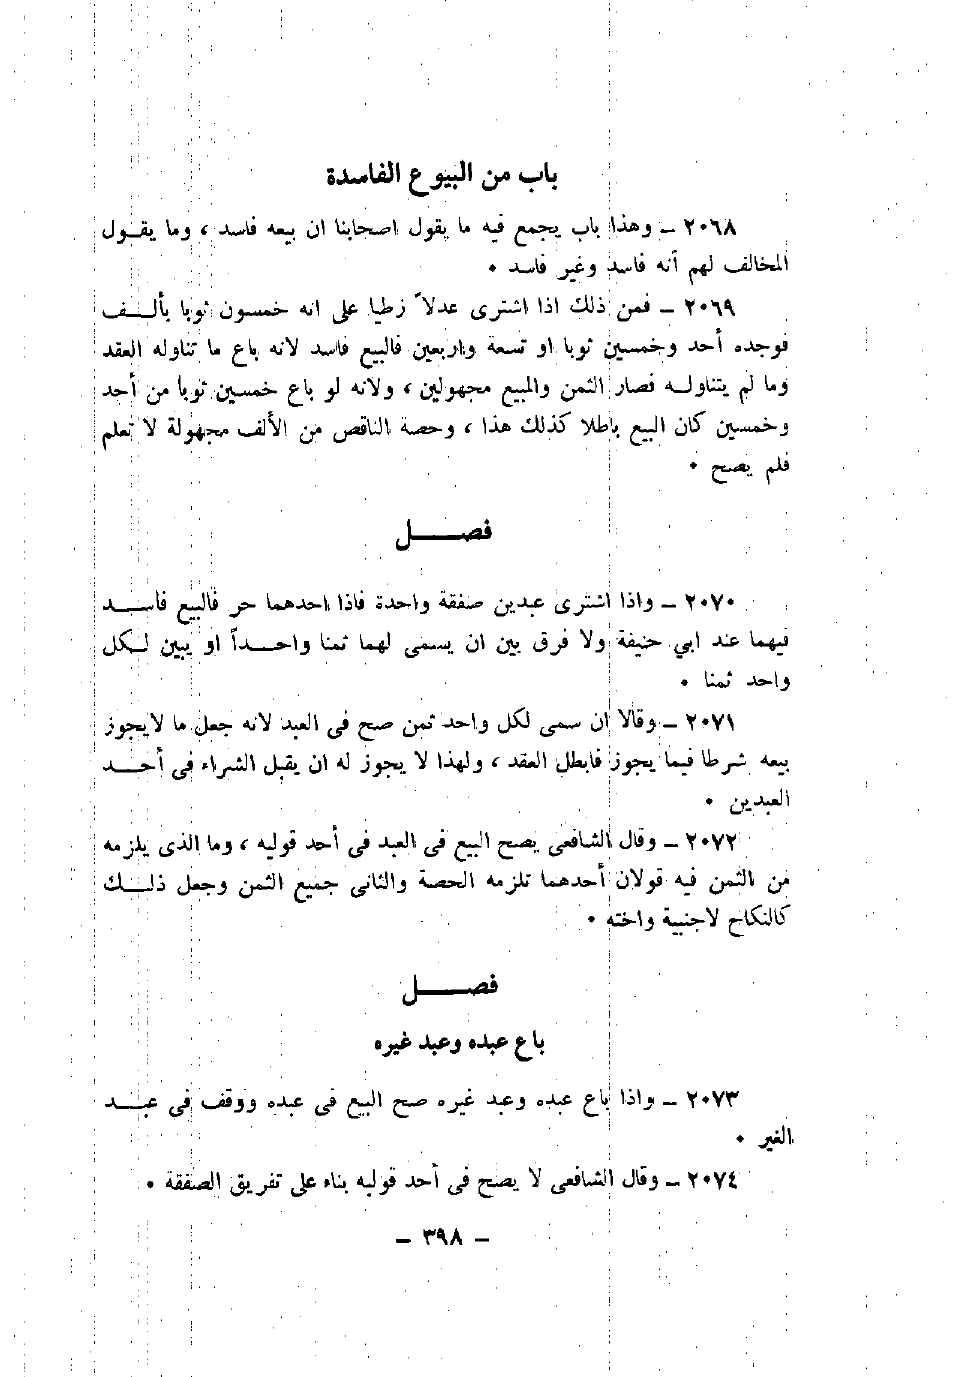 باب من البيوع الفاسدة
٢٠٦٨ ــ وهذا باب يجمع فيه ما يقول اصحابنا ان بيعه فاسد ، وما يقــول
المخالف لهم أنه فاسد وغير فاسد ٠
٢٠٦٩ ــ فمن ذلك اذا اشترى عدلاً زطيا على انه خمسون ثوبا بألــف
فوجده أحد وخمسين ثوبا او تسعة واربعين فالبيع فاسد لانه باع ما تناوله العقد
وما لم يتناولــه فصار الثمن والمبيع مجهولين ، ولانه لو باع خمسين ثوبا من أحد
وخمسين كان البيع باطلا كذلك هذا ، وحصة الناقص من الألف مجهولة لا تعلم
فلم يصح ٠
فصـــــل
٢٠٧٠ ــ واذا اشترى عبدين صفقة واحدة فاذا احدهما حر فالبيع فاســد
فيهما عند ابي حنيفة ولا فرق بين ان يسمى لهما ثمنا واحــداً او يبين لــكل
واحد ثمنا ٠
٢٠٧١ ــ وقالا ان سمى لكل واحد ثمن صح فى العبد لانه جعل ما لايجوز
بيعه شرطا فيما يجوز فابطل العقد ، ولهذا لا يجوز له ان يقبل الشراء فى أحــد
العبدين ٠
٢٠٧٢ ــ وقال الشافعى يصح البيع فى العبد فى أحد قوليه ، وما الذى يلزمه
من الثمن فيه قولان أحدهما تلزمه الحصة والثانى جميع الثمن وجعل ذلــك
كالنكاح لاجنبية واخته ٠
فصـــــل
باع عبده وعبد غيره
٢٠٧٣ ــ واذا باع عبده وعبد غيره صح البيع فى عبده ووقف فى عبــد
الغير ٠
٢٠٧٤ ــ وقال الشافعى لا يصح فى أحد قوليه بناء على تفريق الصفقة ٠
ــ ٣٩٨ ــ